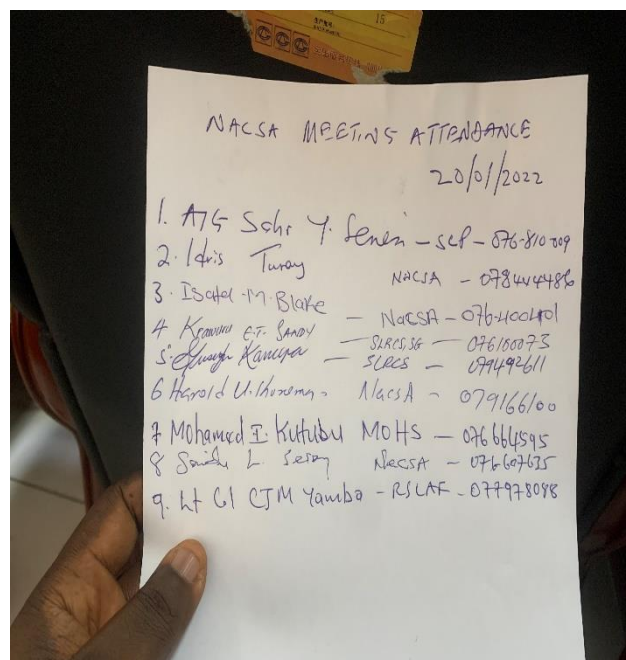 15
CCC
NACSA MEETING ATTENDANCE
20/01/2022
1. AIG Sahr Y. Senesi - SLP - 076-810-009
2. Idris Turay NACSA - 078444486
3. Isatu M. Blake - NaCSA - 076-400401
4 E.T. SANDY - SLRCS, SG - 076100073
5. Kamara - SLRCS - 079492611
6 Harold U. Thoronka - NacsA - 079166100
7 Mohamed I. Kutubu MOHS - 076664595
8 L. Sesay NaCSA - 076-607635
9. Lt Cl CJM Yamba - RSLAF - 077978088